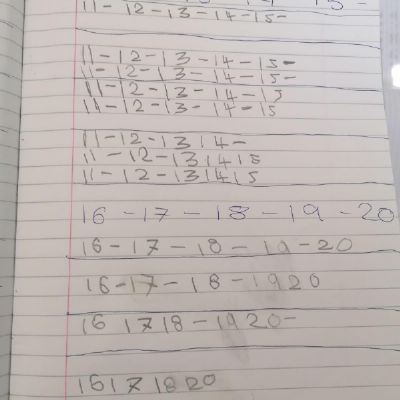 11-12-13-14-15-
11-12-13-14-15-
11-12-13-14-15-
11-12-13-14-15
11-12-13-14-15
11-12-1314-
11-12-131415
11-12-131415
16-17-18-19-20
16-17-18-19-20
16-17-18-1920
16 1718-1920-
16171820